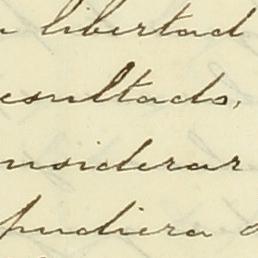 a libertad
esultado,
nsiderar
pudiera